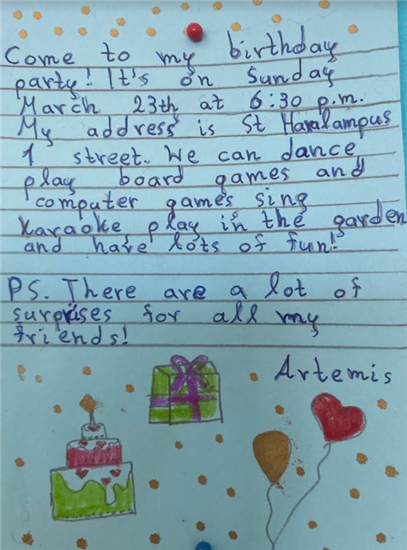 Come to my birthday
party! It's on Sunday
March 23th at 6:30 p.m.
My address is St Haralampus
1 street. We can dance
play board games and
computer games sing
karaoke, play in the garden
and have lots of fun!
PS. There are a lot of
surprises for all my
friends!
Artemis